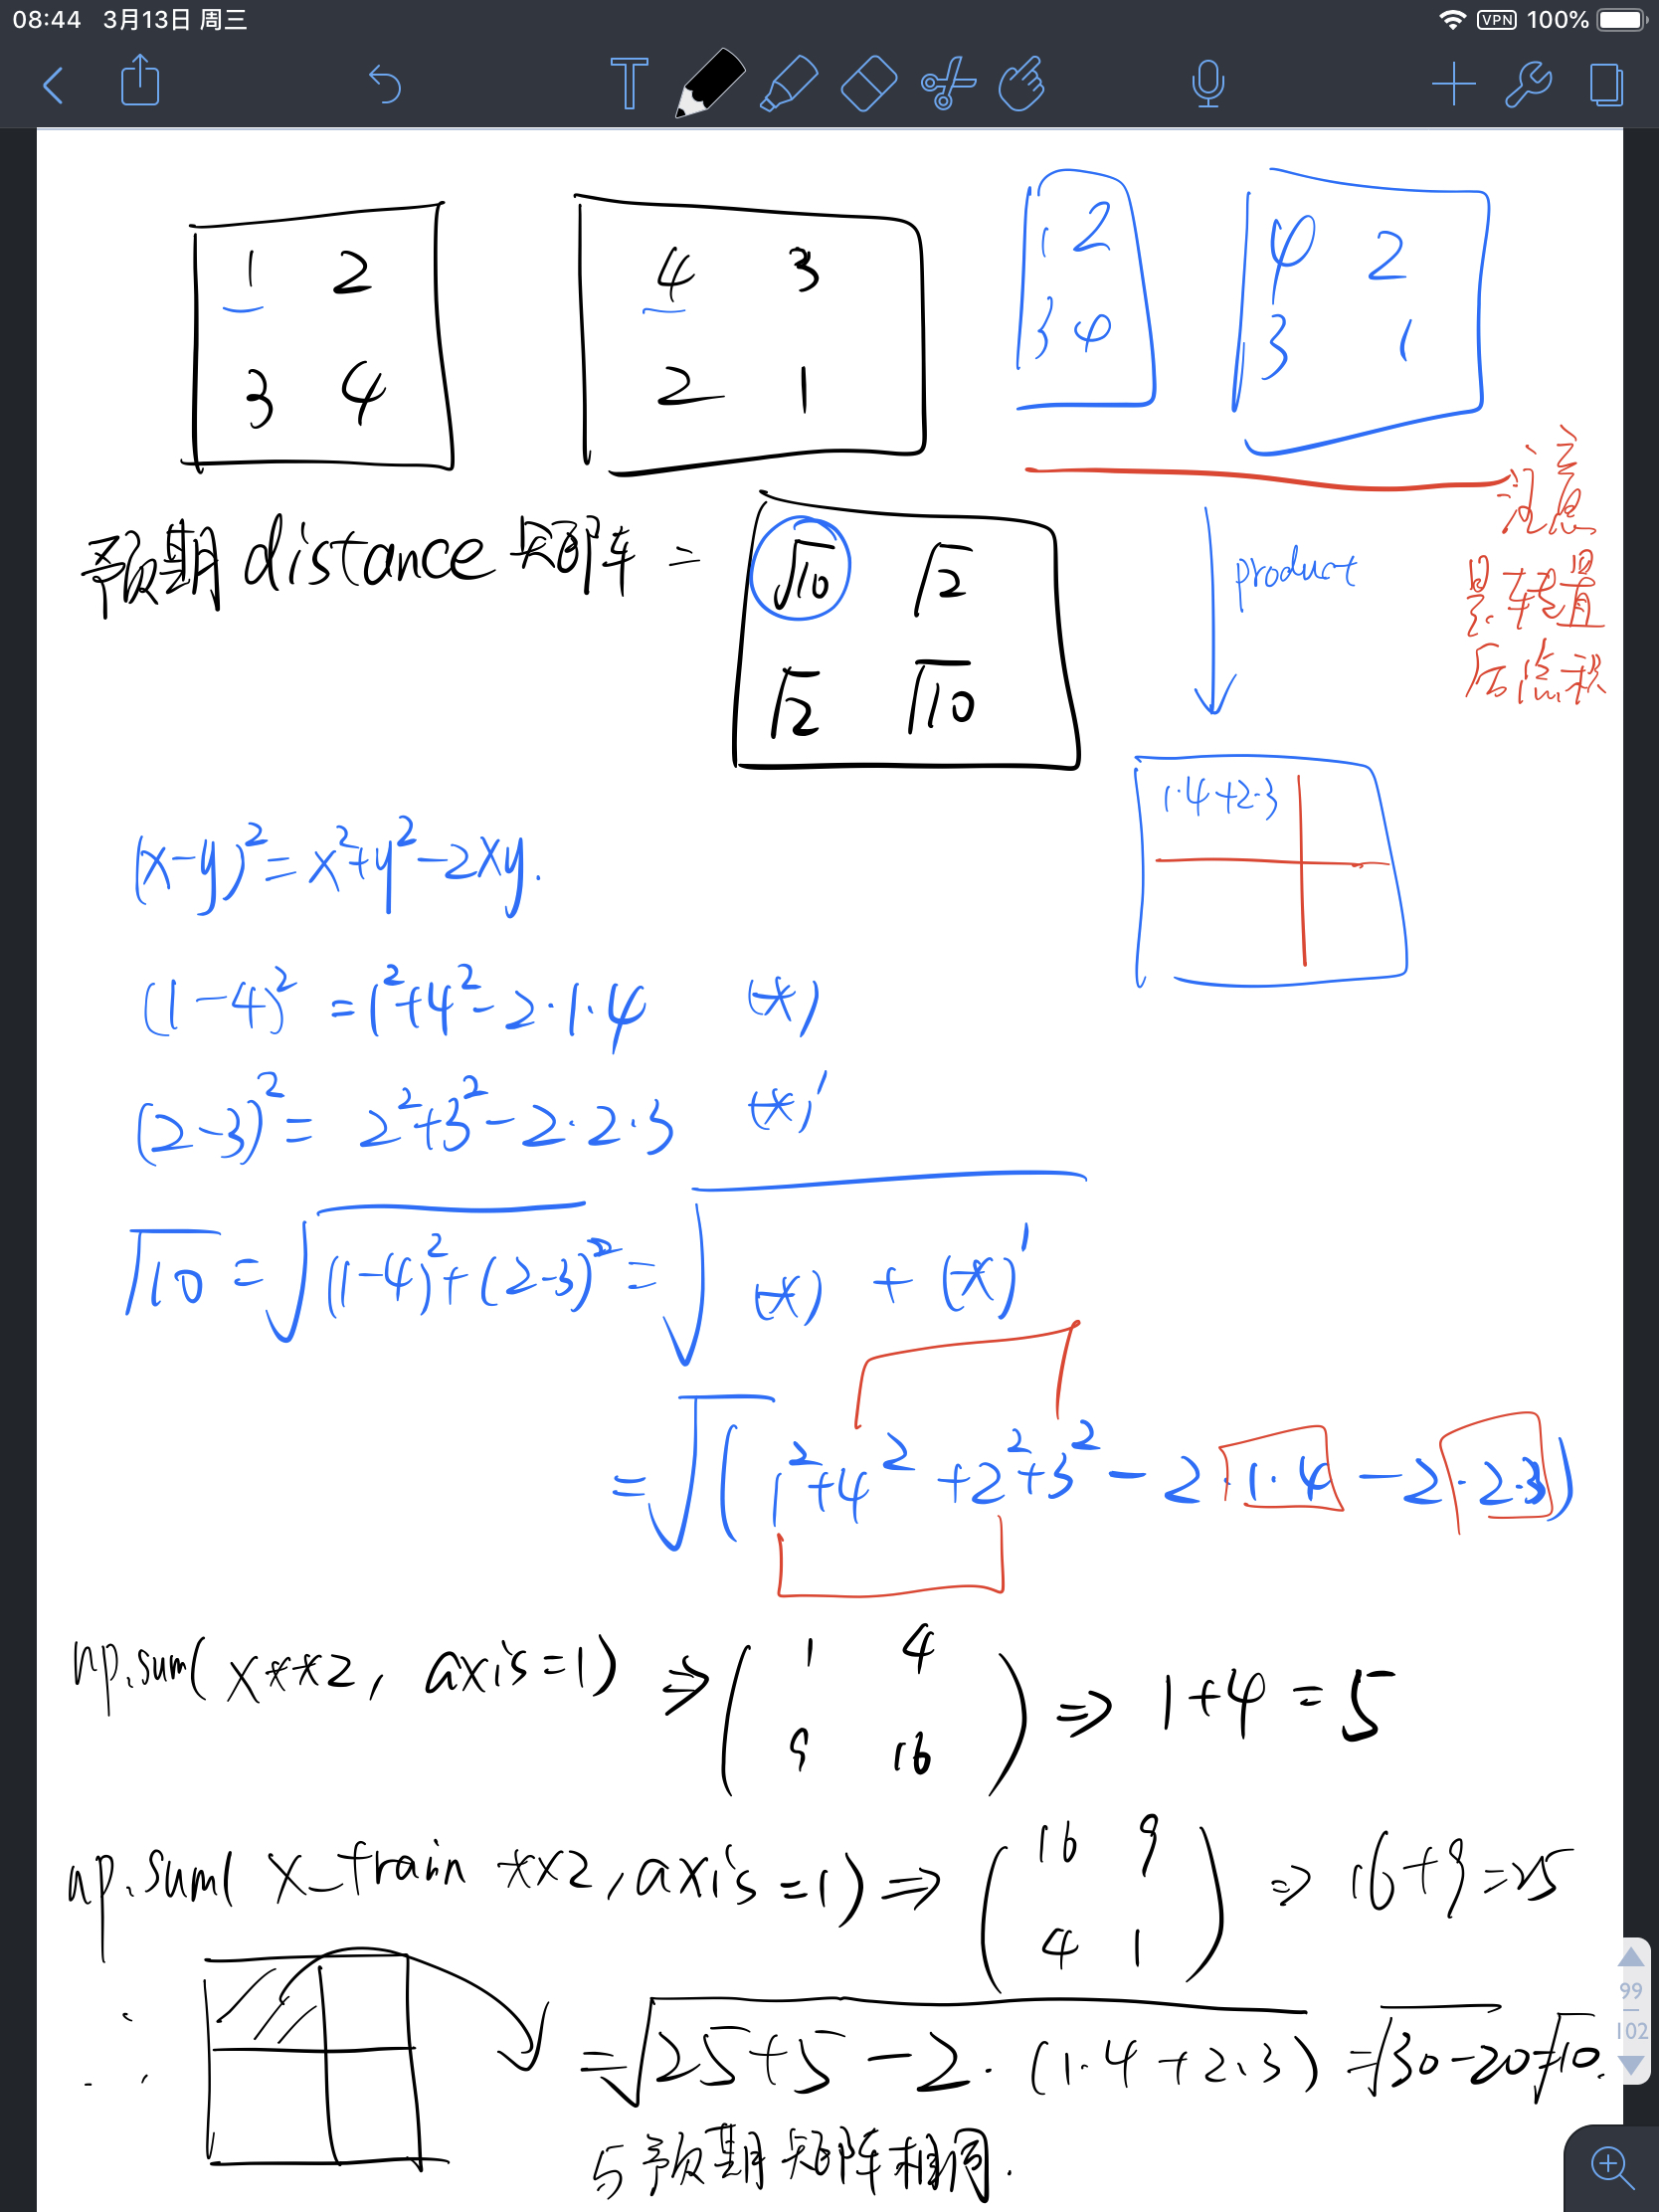 08:44 3月13日 周三
VPN 100%
T
1 2
3 4
4 3
2 1
1 2
3 4
4 2
3 1
注意
是转置
后点积
预期distance矩阵 =
√10 √2
√2 √10
product
1·4+2·3
(x-y)²=x²+y²-2xy.
(1-4)²=1²+4²-2·1·4 (*)
(2-3)²= 2²+3²-2·2·3 (*)'
√10=√(1-4)²+(2-3)²=√(*) + (*)'
=√(1²+4²+2²+3²-2·1·4-2·2·3)
np.sum(X**2, axis=1) ⇒ ( 1 4
9 16 ) ⇒ 1+4=5
np.sum(X_train **2, axis=1) ⇒ ( 16 9
4 1 ) ⇒ 16+9=25
∴
=√25+5-2·(1·4+2·3)=√30-20=√10.
与预期矩阵相同.
99
102